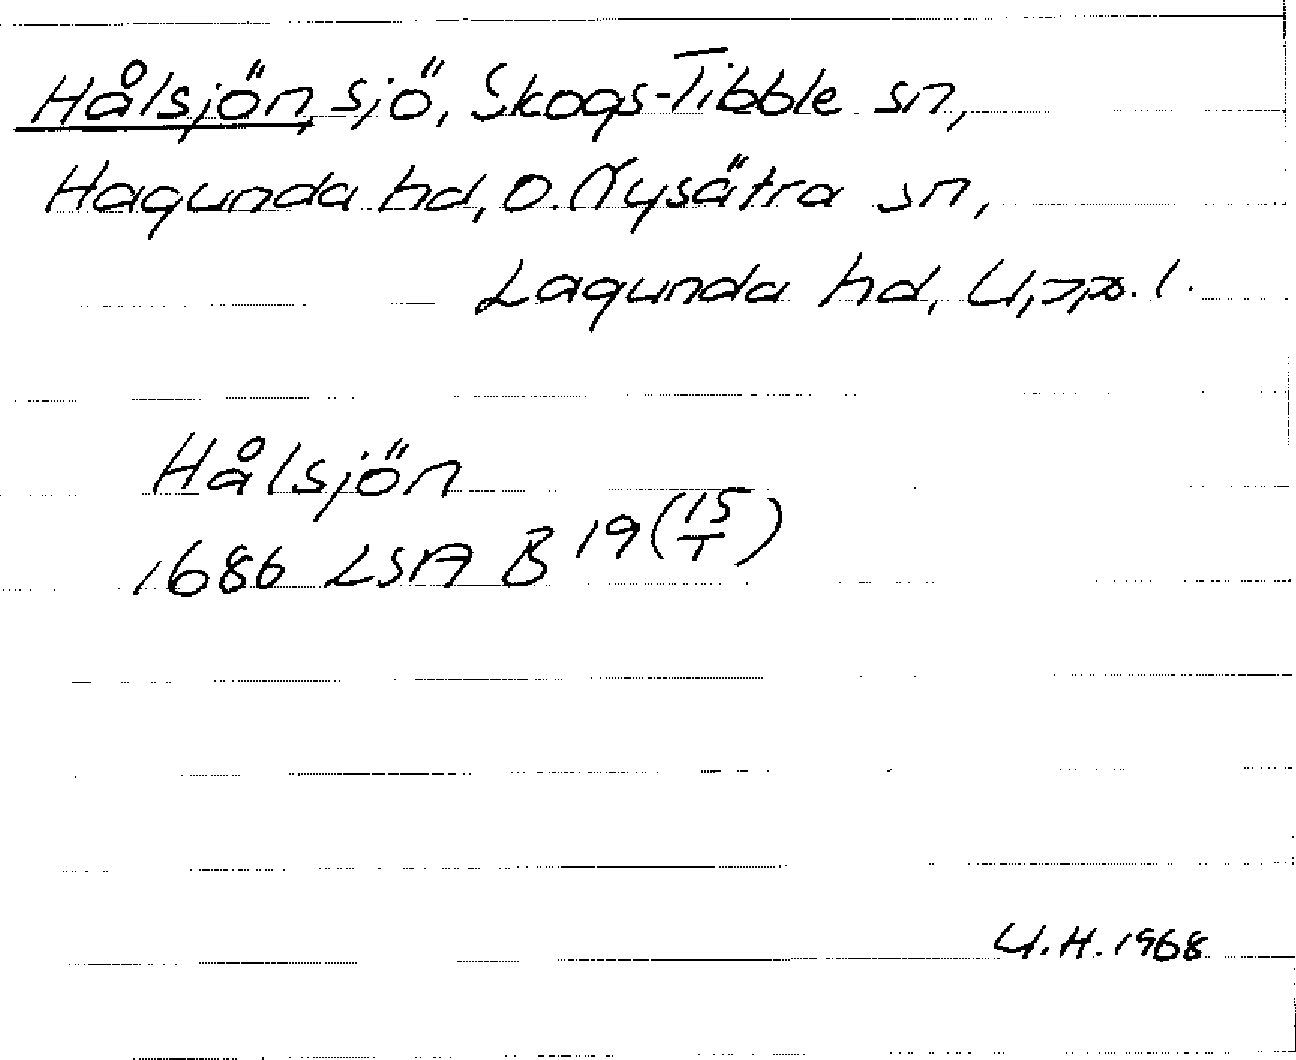 Hålsjön, sjö, Skogs-Tibble sn,
Hagunda hd, o. Nysätra sn,
Lagunda hd, U, pp. l.
Hålsjön
1686 LSA B 19 (15/1)
U.H. 1968